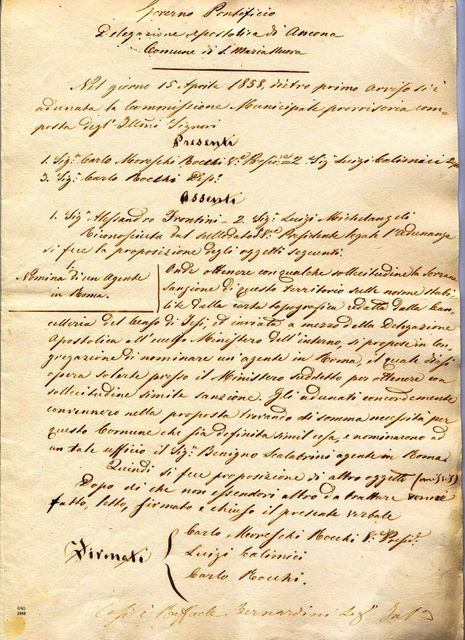 Governo Pontificio
Delegazione Apostolica di Ancona
Comune di S. Maria Nuova
Nel giorno 15 Aprile 1858, dietro primo Avviso si è
adunata la Commissione Municipale provvisoria com=
posta degl' Illmi Signori
Presenti
1. Sig. Carlo Moreschi Rocchi V. Presid. 2. Sig. Luigi Calimici
3. Sig. Carlo Rocchi Dep.
Assenti
1. Sig. Alessandro Frontini - 2. Sig. Luigi Michelangeli
Riconosciuta dal sullodato V. Presidente legale l'adunanza
si fece la proposizione degli oggetti seguenti.
1.
Nomina di un Agente
in Roma.
Onde ottenere con qualche sollecitudine la Sovrana
sanzione di questo territorio sulle norme stabi=
lite dalla carta topografica redatta dalla Can
celleria del Censo di Jesi, ed inviata a mezzo della Delegazione
Apostolica all' Ministero dell' interno, si propose in Con
gregazione di nominare un' agente in Roma, il quale
opera solerte presso il Ministero suddetto per ottenere con
sollecitudine simile sanzione. Gli adunati concordemente
convennero nella proposta trovando di somma necessità per
questo Comune che sia definita simil cosa, e nominarono ad
un tale ufficio il Sig. Benigno Scalabrini agente in Roma.
Quindi si fece proposizione di altro oggetti
Dopo di che non essendovi altro a trattare venne
fatto, letto, firmato e chiuso il presente verbale
Firmati
Carlo Moreschi Rocchi V. Presid.
Luigi Calimici
Carlo Rocchi.
Così è Raffaele Bernardini Seg.
GSG
2008